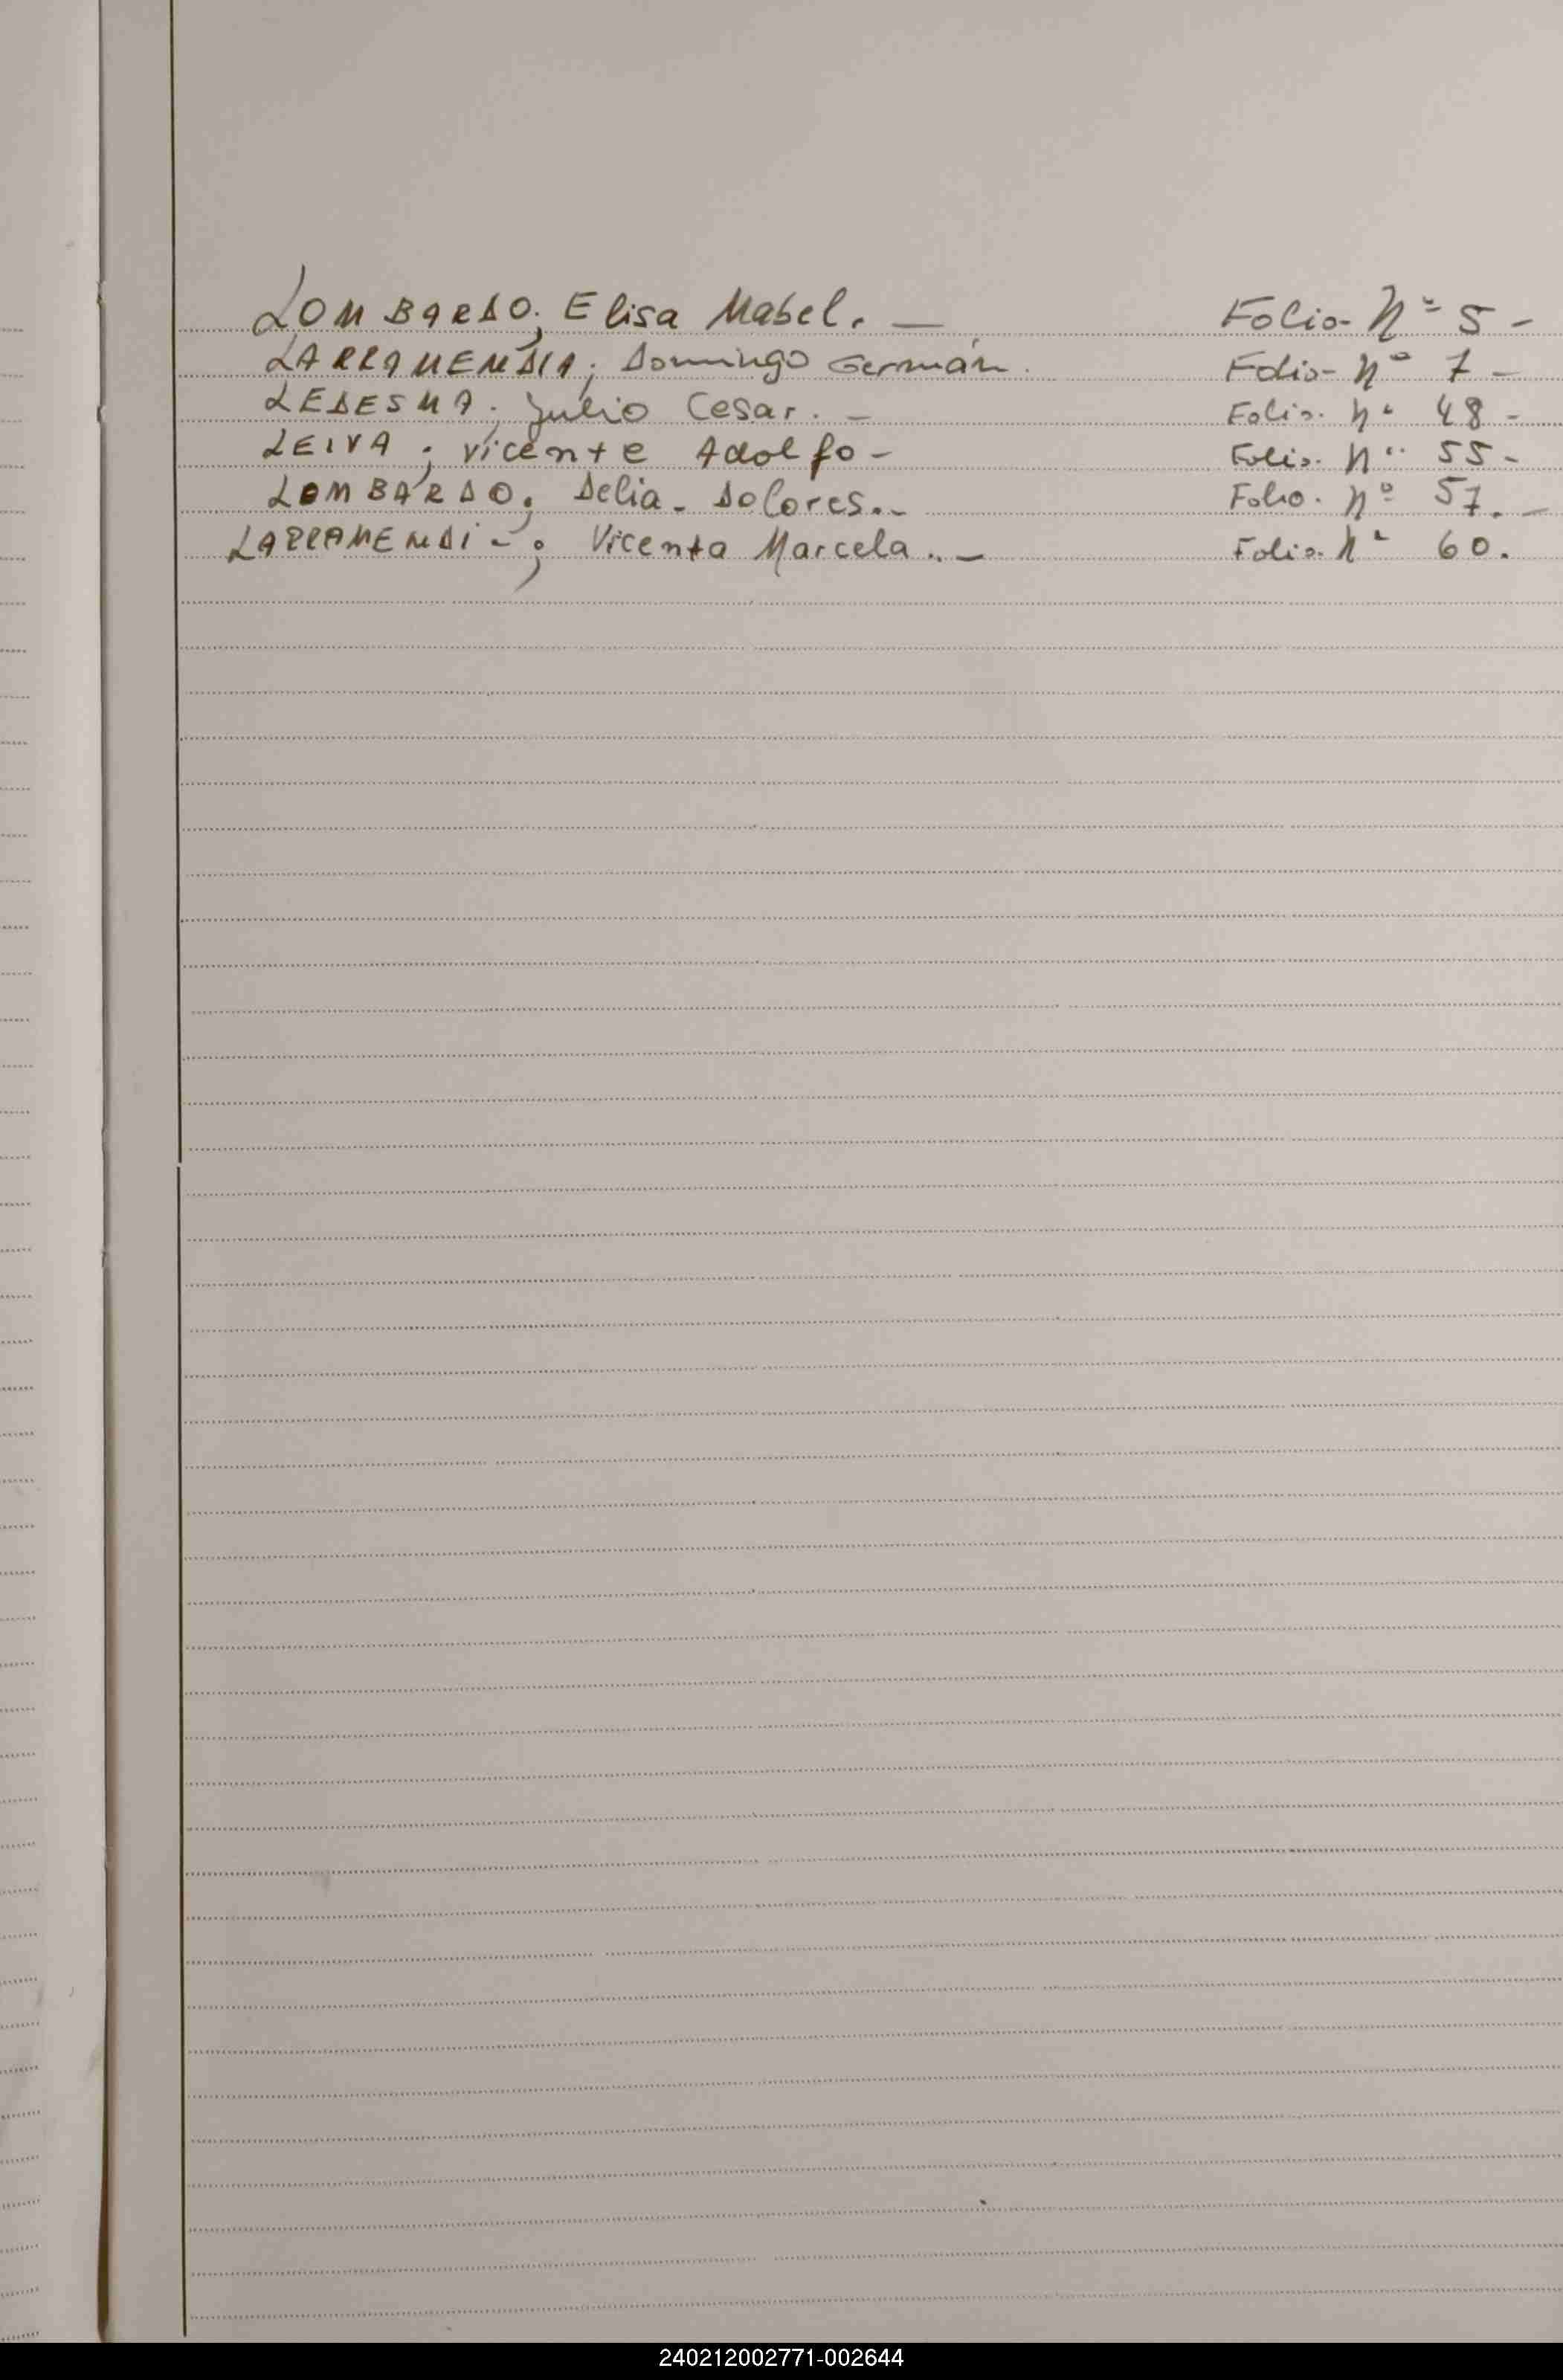 LOMBARDO; Elisa Mabel. — Folio- Nº 5 -
LARRAMENDIA; Domingo Germán. Folio- Nº 7 -
LEDESMA; Julio Cesar. - Folio. Nº 48 -
LEIVA; Vicente Adolfo - Folio. Nº 55 -
LOMBARDO; Delia. Dolores. - Folio. Nº 57. -
LARRAMENDI - ; Vicenta Marcela. - Folio. Nº 60.
240212002771-002644